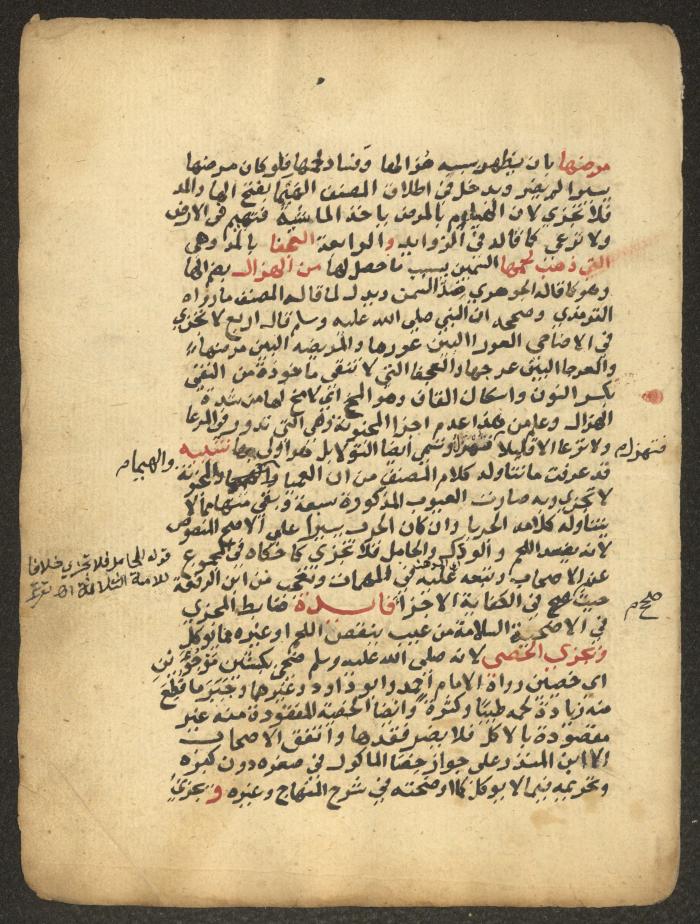 مرضها بان يظهر بسببه هزالها وفساد لحمها فلو كان مرضها
يسيرا لم يضر ويدخل في اطلاق المصنف الهيما بفتح الها والمد
فلا تجزي لان الهيام كالمرض ياخذ الماشية فتهيم في الارض
ولا ترعي كما قاله في الزوايد والرابعة العجفا بالمد وهي
التي ذهب لحمها السمين بسبب ما حصل لها من الهزال بضم الها
وهو كما قاله الجوهري ضد السمن ويدل لما قاله المصنف ما رواه
الترمذي وصححه ان النبي صلي الله عليه وسلم قال اربع لا تجزي
في الاضاحي العورا البين عورها والمريضه البين مرضها
والعرجا البين عرجها والعجفا التي لا تنقي ماخوذة من النقي
بكسر النون واسكان القاف وهو المخ اي لا مخ لها من شدة
الهزال وعلم من هذا عدم اجزا المجنونة وهي التي تدور في المرعا
ولا ترعا الا قليلا فتهزل وتسمي ايضا التولا بل هو اولي بها تنبيه
قد عرفت ما تناوله كلام المصنف من ان العميا والمجنونة
لا تجزي وبه صارت العيوب المذكورة سبعة وبقي منها ما لا
يتناوله كلامه الجربا وان كان الجرب يسيرا علي الاصح المنصوص
لانه يفسد اللحم والودك والحامل فلا تجزي كما حكاه في المجموع
عن الاصحاب وتبعه عليه في المهمات وتعجب من ابن الرفعة
حيث صحح في الكفاية الاجزا فايدة ضابط المجزي
في الاضحية السلامة من عيب ينقص اللحم او غيره مما يوكل
ويجزي الخصي لانه صلي الله عليه وسلم ضحي بكبشين موجوئين
اي خصيين رواه الامام احمد وابو داود وغيرهما وجبر ما قطع
منه زيادة لحمه طيبا وكثرة وايضا الخصية المفقودة منه غير
مقصودة بالاكل فلا يضر فقدها واتفق الاصحاب
الا ابن المنذر علي جواز خصا الماكول في صغره دون كبره
وتحريمه فيما لا يوكل كما اوضحته في شرح المنهاج وغيره ويجزي
فتهزل م
والهيما م
قوله الحامل فلا تجزي خلافا
صح م